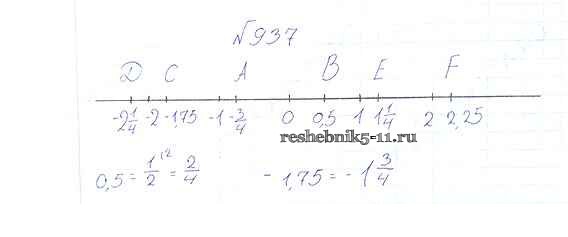 №937
D C A B E F
-2 1/4 -2 -1,75 -1 -3/4 0 0,5 1 1 1/4 2 2,25
reshebnik5-11.ru
0,5 = 1/2 ^(2 = 2/4 - 1,75 = -1 3/4